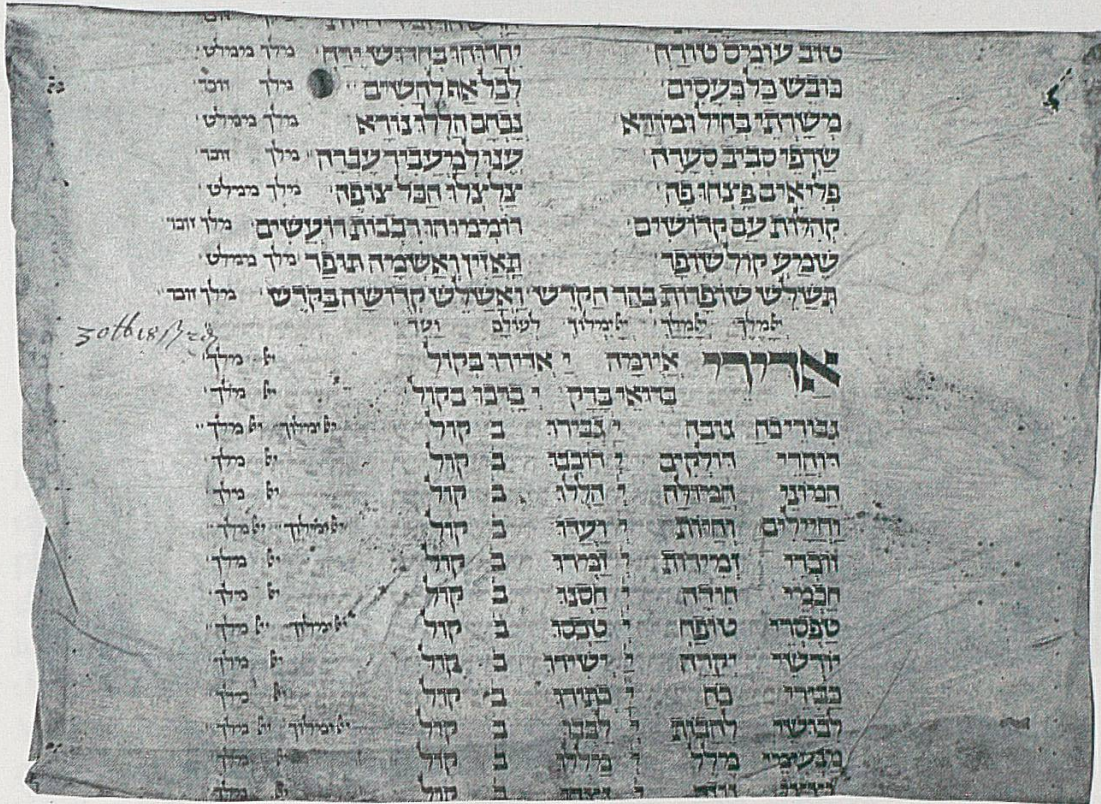 טוב עומס טורח יחדוהו בחדוש ירח מלך ממליט
כובש כל כעסים לבל את להשים מלך זוכר
משרתי בחול ומורא נגהם הללו נורא מלך ממליט
שרפי סביב סערה ענו למעביר עברה מלך זוכר
פליאים פצחו פה צלצלו הכל צופה מלך ממליט
קהלות עם קדושים רוממוהו רבבות רועשים מלך זוכר
שמע קול שופר תאזין ואשמה תופר מלך ממליט
תשלש שופרות בהר הקדש ואשלש קדושה בקדש מלך זוכר
יא מלך יא מלך יא ימלוך לעולם ועד
אדירי איומה י אדירו בקול יא מלך
ברואי ברק י ברכו בקול יא מלך
גבורי גובה י גבירו ב קול יא ימלוך יא מלך
דוהרי דולקים י דובבו ב קול יא מלך
המוני המולה י הללו ב קול יא מלך
וחיילים וחיות י ועדו ב קול יא ימלוך יא מלך
זוכרי זמירות י זמרו ב קול יא מלך
חכמי חידה י חסנו ב קול יא מלך
טפסרי טופח י טכסו ב קול יא ימלוך יא מלך
יורשי יקרה י ישירו ב קול יא מלך
כבירי כח י כתירו ב קול יא מלך
לבושי להבות י לבבו ב קול יא ימלוך יא מלך
מנעימי מלל י מללו ב קול יא מלך